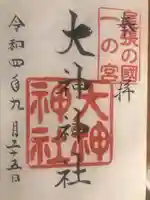 奉拝
長門の國
一の宮
大神神社
大神
神社
令和四年九月二十五日